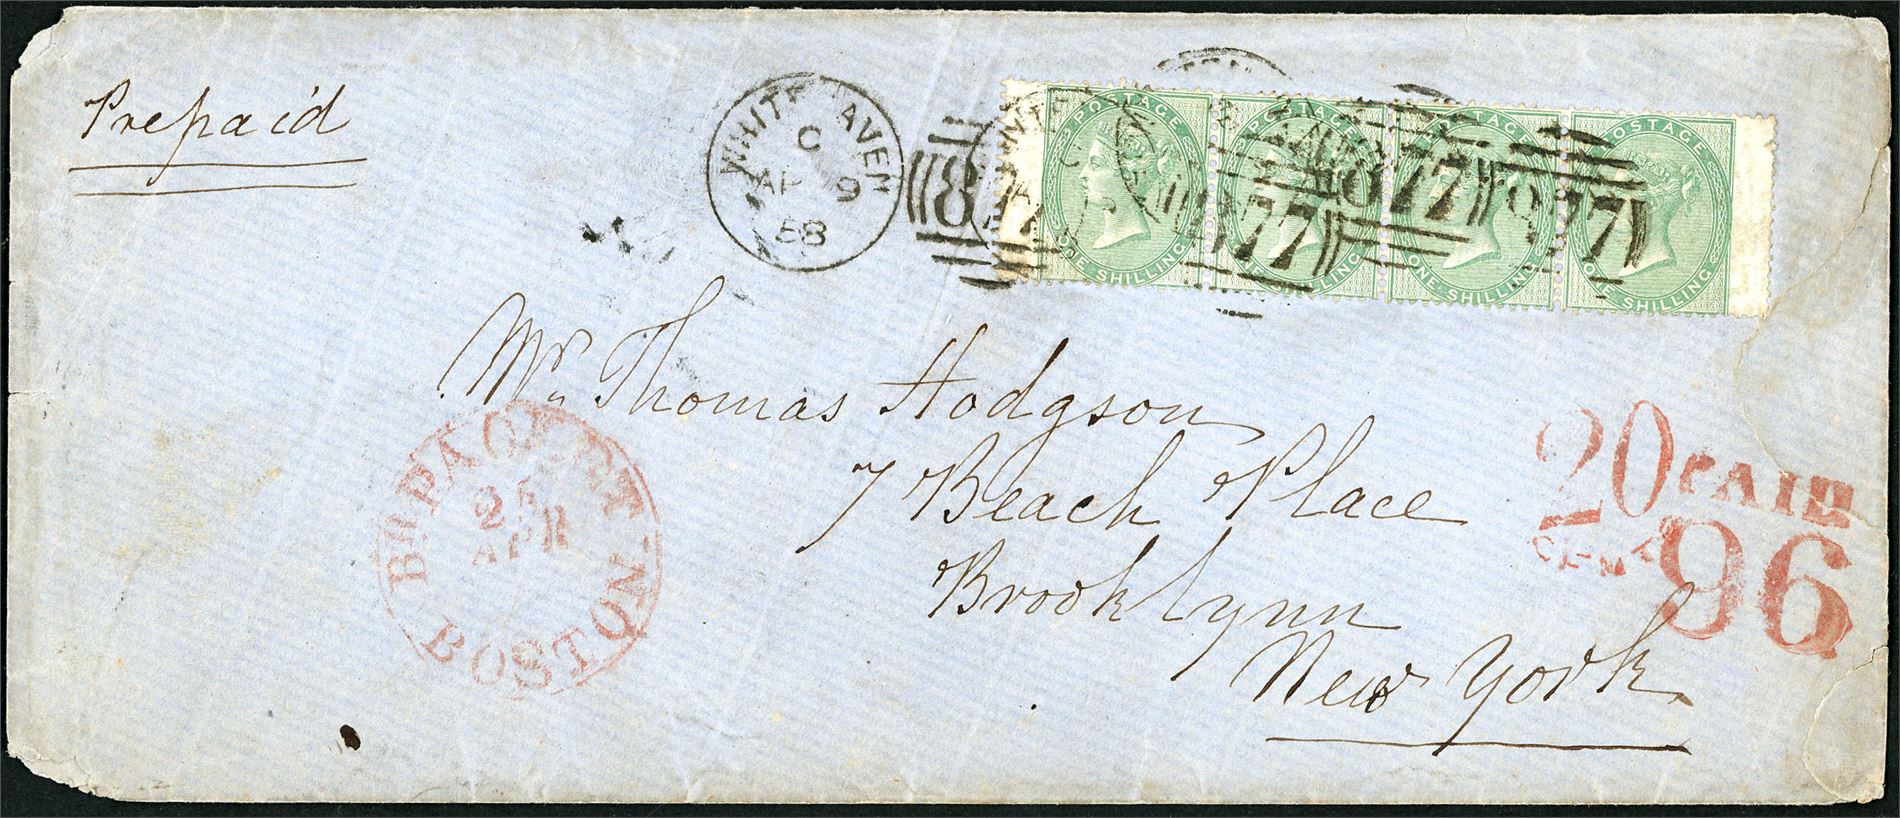 Prepaid
WHITEHAVEN
C
AP 9
58
877
POSTAGE POSTAGE POSTAGE POSTAGE
877 877 877
ONE SHILLING ONE SHILLING ONE SHILLING ONE SHILLING
Mr. Thomas Hodgson
7 Beach Place
Brooklynn
New York
BR. PACKET
APR
BOSTON
20 PAID
CENTS
96